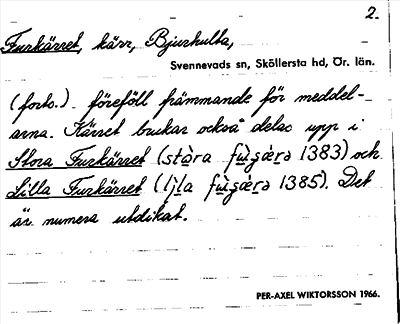 2.
Furkärret, kärr, Bjurhulta,
Svennevads sn, Sköllersta hd, Ör. län.
(forts.) föreföll främmande för meddel-
arna. Kärret brukar också delas upp i
Stora Furkärret (stɑ̀ra fùʂɡæ̀rə 1383) och
Lilla Furkärret (lìla fùʂɡæ̀rə 1385). Det
är numera utdikat.
PER-AXEL WIKTORSSON 1966.